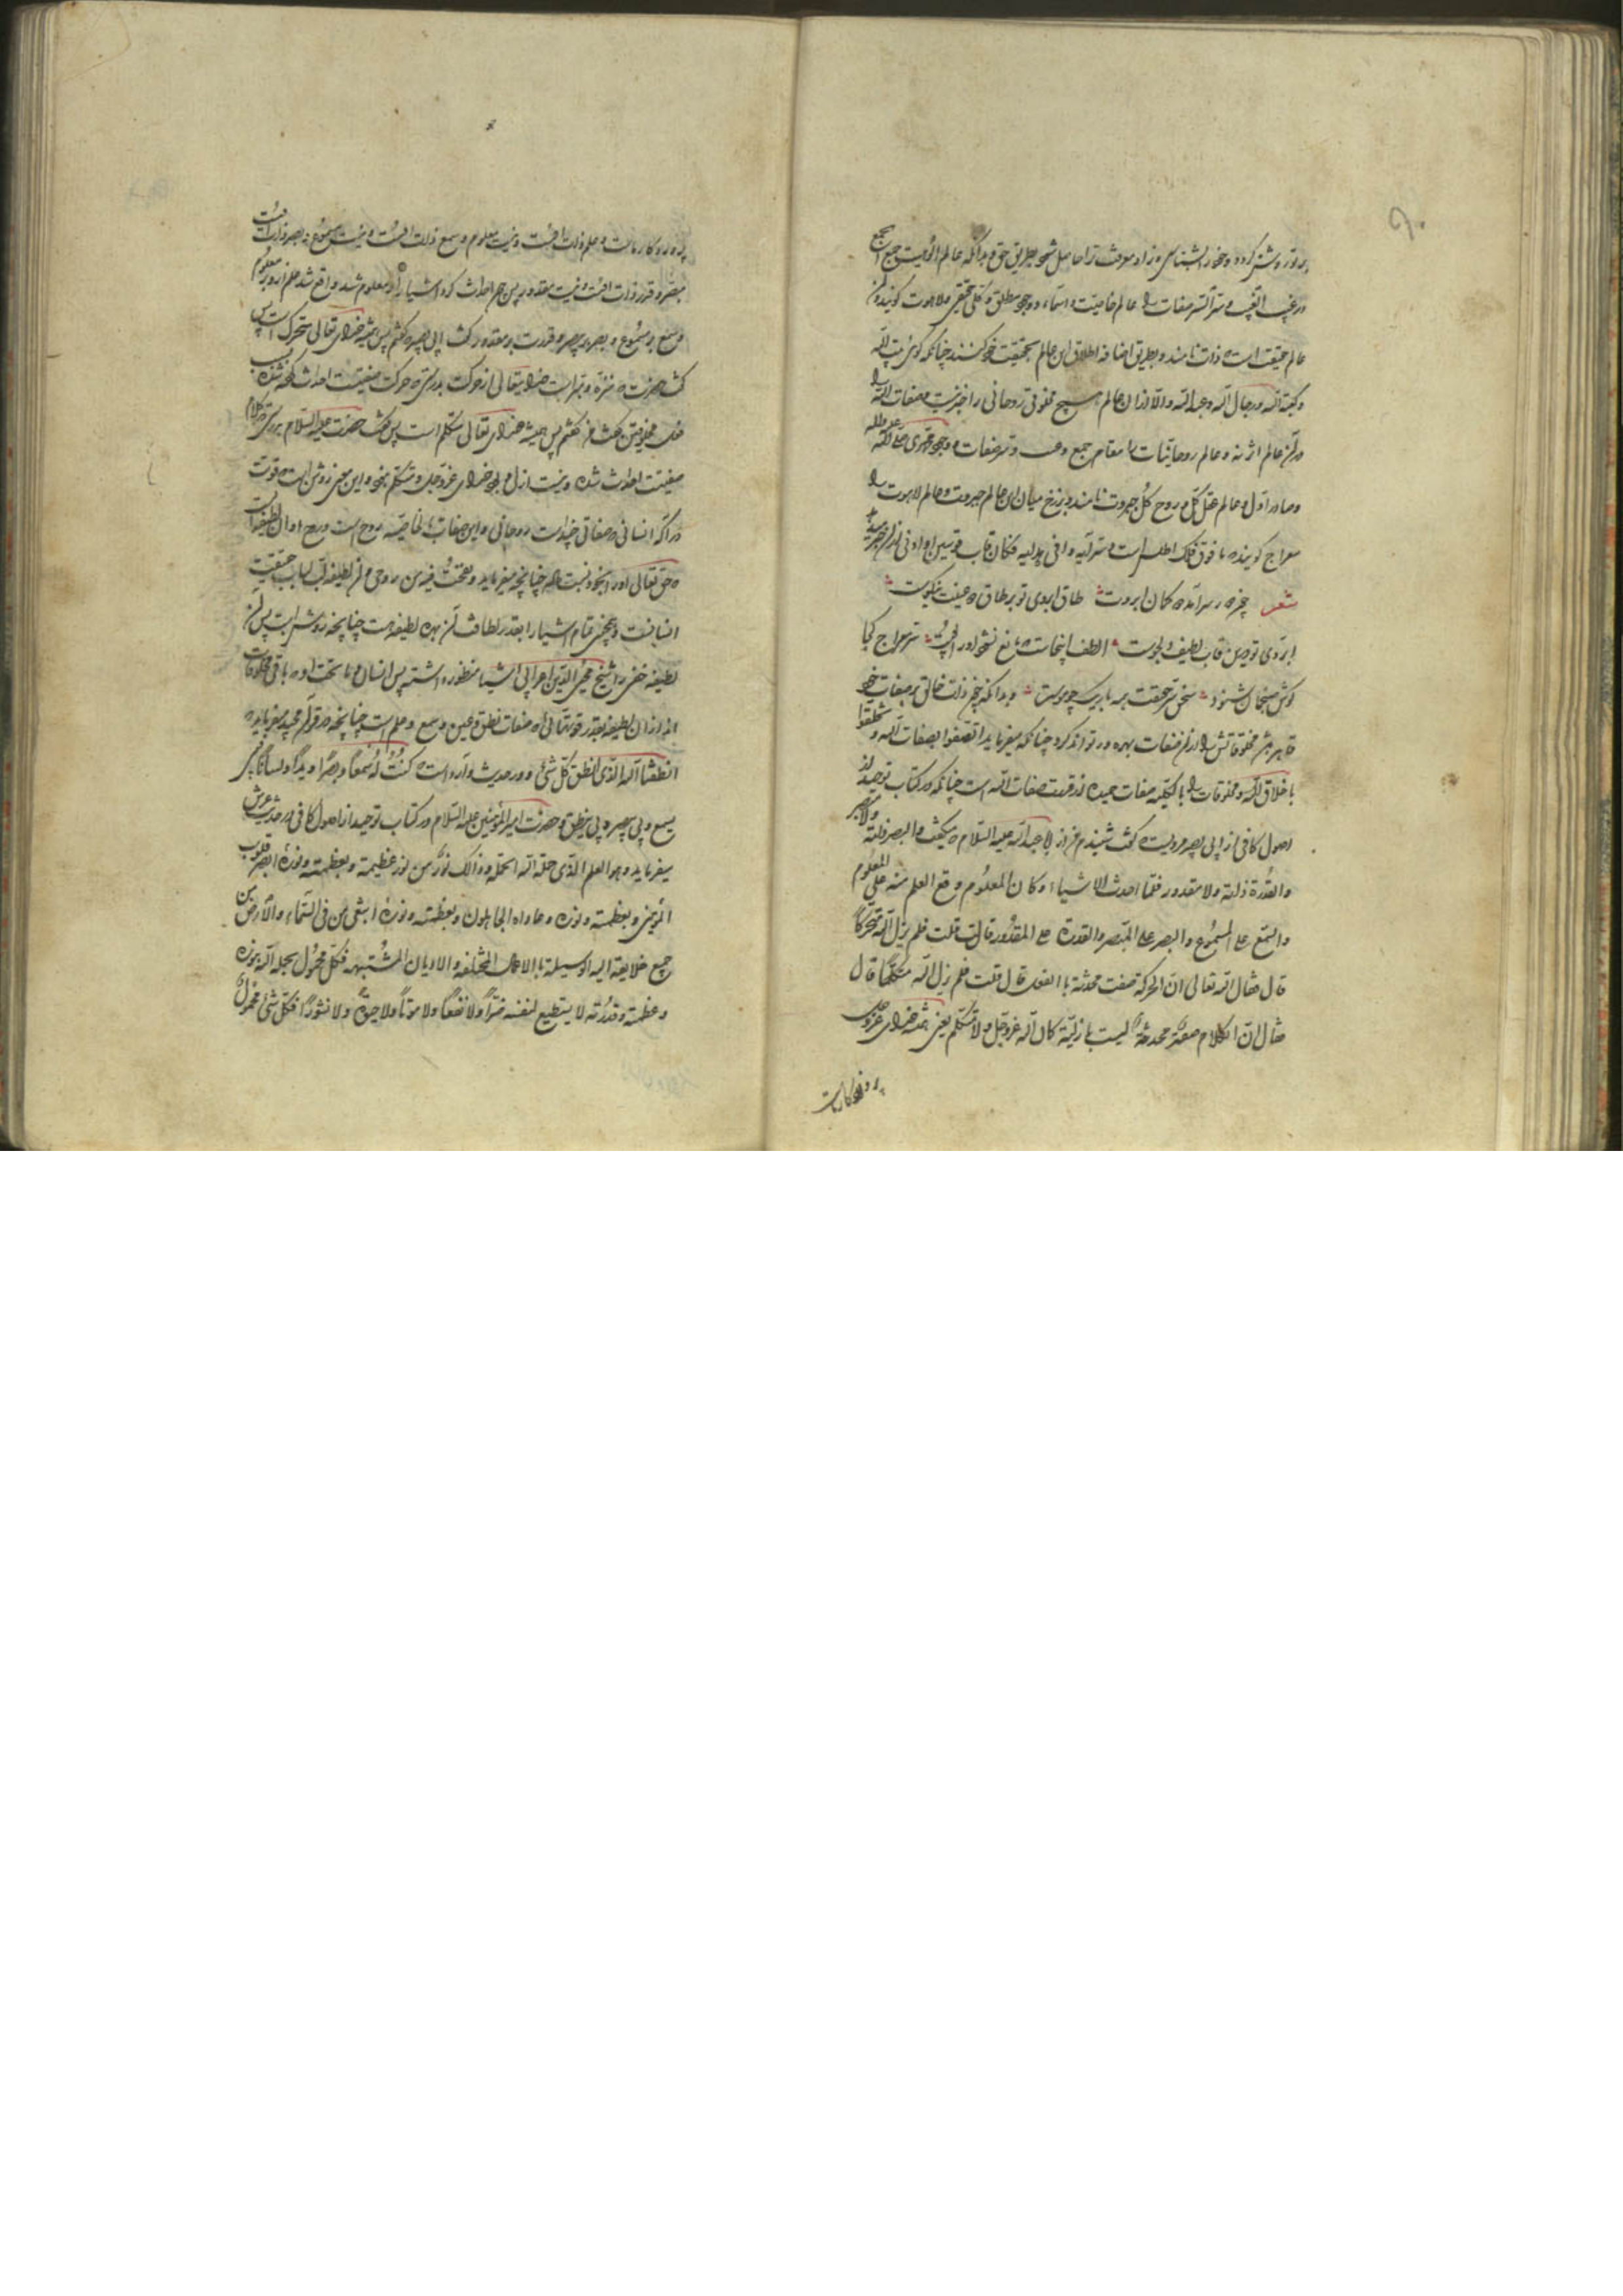 بر تو روشن کردد و خود را بشناسی و زاد معرفت ترا حاصل شود بطریق حق و بدانکه عالم الوهیت جمع الجمع
و غیب الغیب و سر السر صفات را عالم خاصیت و اسماء و وجود مطلق و کلی حقیقی و لاهوت کویند و آن
عالم حقیقت است که ذات نامند و بطریق اضافه اطلاق این عالم بحقیقت خود کنند چنانکه کوئی بیت الله
و کعبة الله و رجال الله و عبد الله و الا از آن عالم هیچ مخلوقی روحانی را خبر نیست و صفات الله را
در آن عالم اثر نه و عالم روحانیات را مقام جمع و صفات و وجود محمدی صلی الله علیه و آله
و صادر اول و عالم عقل کل و روح کل و جبروت نامند و برزخ میان این عالم جبروت و عالم لاهوت را
معراج کویند که ما فوق فلک اطلس است و سر آیه وافی هدایه فکان قاب قوسین او ادنی از آن خبر میدهد
شعر چرخ در سر آمده کمان ابروت طاق ابروی تو بر طاق
ابروی تو صیل قاب لطیف دلجوست الطف اینجاست نشود او را پوست سر معراج کجا
کوش شنود سخن سر حقیقت همه باریک چو موست و بدانکه چون ذات خالق بر صفات خود
قاهر هر مخلوقاتش را از آن صفات بهره ور تواند کرد چنانکه میفرماید اتصفوا بصفات الله و تخلقوا
باخلاق الله و مخلوقات را بالکلیه صفات حمیده از قدرت صفات الله است چنانکه در کتاب توحید از
اصول کافی از ابی بصیر مرویست که کفت شنیدم از ابا عبد الله علیه السلام که میکفت و البصر ذاته و لا مبصر
و القدرة ذاته و لا مقدور فلما احدث الاشیاء و کان المعلوم وقع العلم منه علی المعلوم
و السمع علی المسموع و البصر علی المبصر و القدرة علی المقدور قال قلت فلم یزل الله متحرکا
قال فقال الله تعالی ان الحرکة صفت محدثة بالفعل قال قلت فلم یزل الله متکلما قال
فقال ان الکلام صفة محدثة لیست بازلیة کان الله عز و جل و لا متکلم یعنی همیشه خدای عز و جل
پروردکار ماست
پروردکار ماست و علم ذات اوست و نیست معلوم و سمع ذات اوست و نیست مسموع و بصر ذات اوست
مبصر و قدرت ذات اوست و نیست مقدور پس چون احداث کرد اشیا را و معلوم شد واقع شد علم از او بر معلوم
و سمع بر مسموع و بصر بر مبصر و قدرت بر مقدور کفت ابی بصیر که کفتم پس همیشه خدای تعالی متحرک است پس
کفت حضرت که منزه و مبراست خدایتعالی از حرکت بدرستی که حرکت صفتیست احداث کرده شده
کفت کفتم پس همیشه خدای تعالی متکلم است پس کفت حضرت علیه السلام بدرستی که کلام
صفتیست احداث شده و نیست ازلی بود خدای عز و جل و متکلم نبود و این معنی روشن است که قوت
دراکه انسانی که صفاتی چند است روحانی و این صفات بالخاصیه روح است و روح او از آن لطیفه است
که حق تعالی او را بخود نسبت داده چنانچه میفرماید و نفخت فیه من روحی و آن لطیفه لب لباب حقیقت
انسانست و همچنین تمام اشیا را بقدر لطافت آن بهره لطیفه است چنانچه روشن است پس آن
لطیفه خفی را شیخ محی الدین اعرابی اشیا منظور داشته پس انسان و ما تحت او که باقی مخلوقات
اند از آن لطیفه بقدر قوتهای که صفات نطق و عین و سمع و علم است چنانچه در قرآن مجید میفرماید که
انطقنا الله الذی انطق کل شیء و در حدیث وارد است که کنت له سمعا و بصرا و یدا و لسانا بی
یسمع و بی یبصر و بی ینطق و حضرت امیر المؤمنین علیه السلام در کتاب توحید از اصول کافی در حدیث عرش
میفرماید و هو العلم الذی حمله الله الحملة و ذالک نور من نور عظمته و بعظمته و نوره ابصر قلوب
المؤمنین و بعظمته و نوره عاداه الجاهلون و بعظمته و نوره ابتغی من فی السماء و الارض من
جمیع خلایقه الیه الوسیلة بالاعمال المختلفة و الادیان المشتبهه فکل محمول یحمله الله بنوره
و عظمته و قدرته لا یستطیع لنفسه ضرا و لا نفعا و لا موتا و لا حیوة و لا نشورا فکل شیء محمول